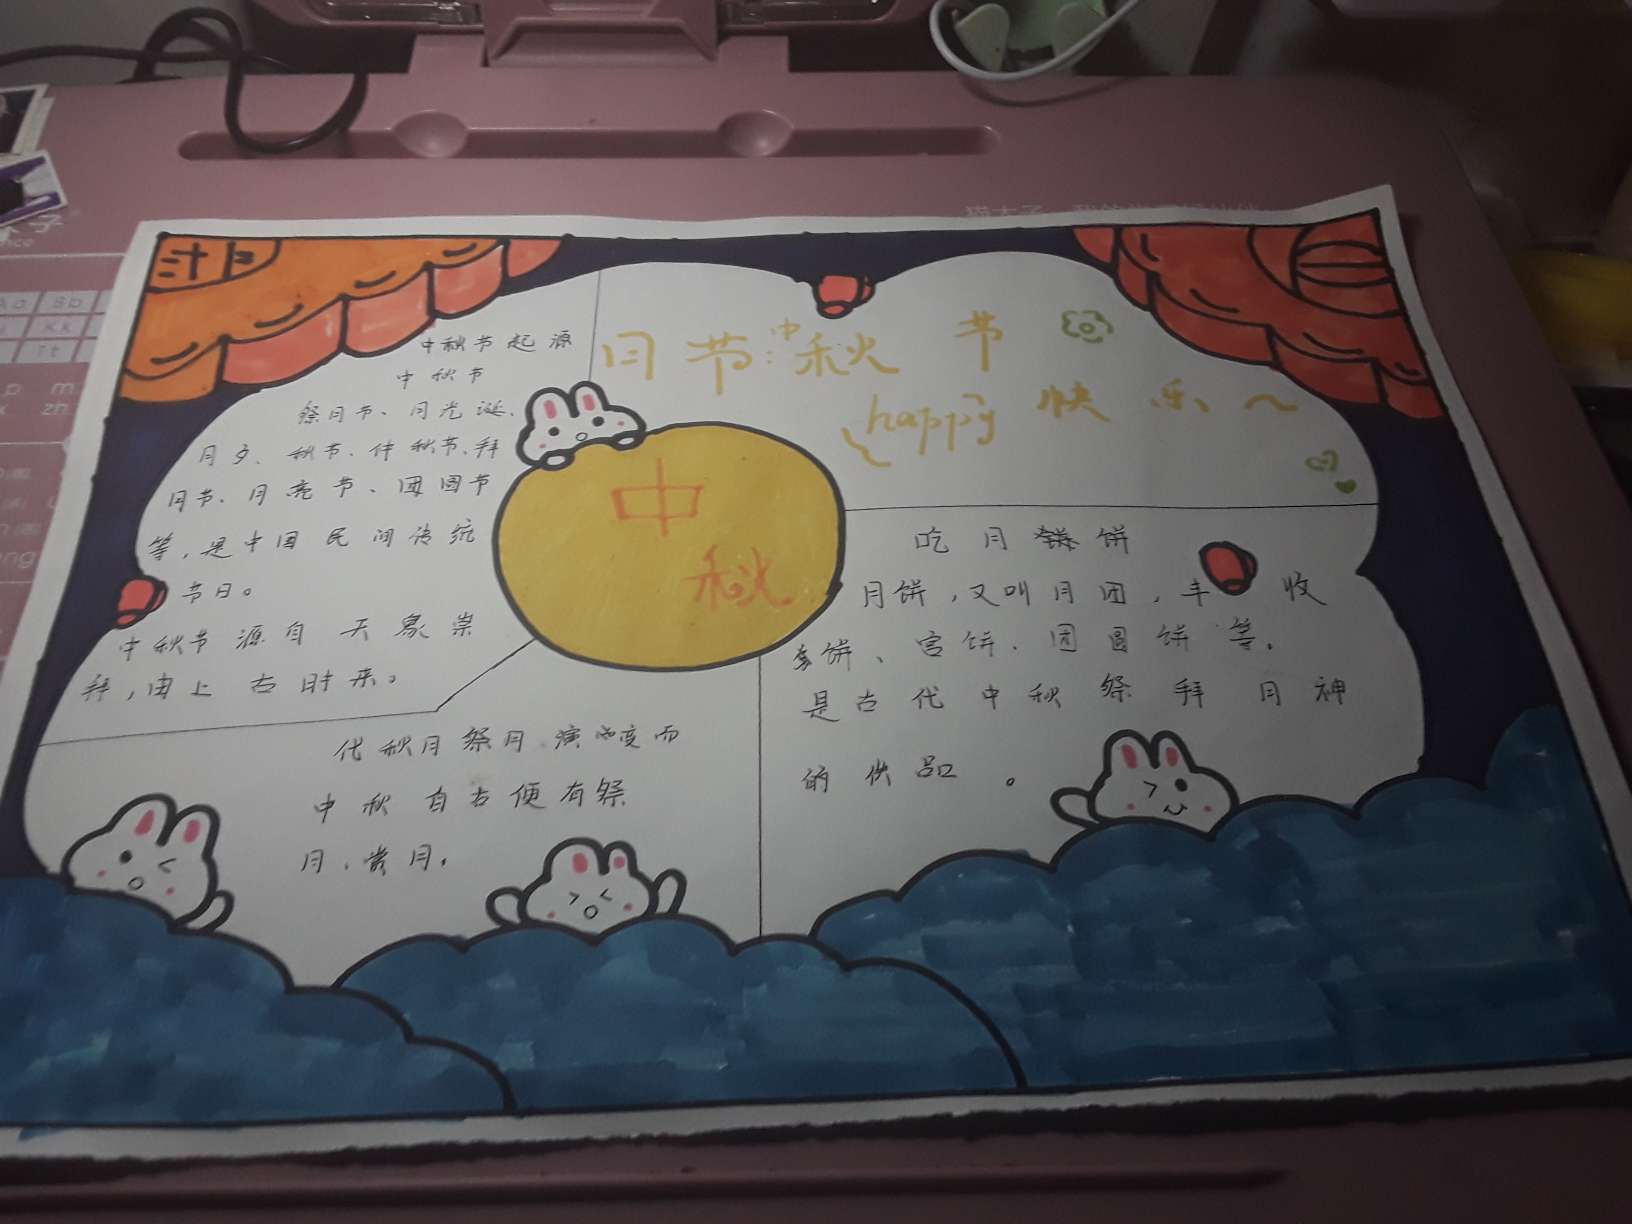 中秋节起源
中秋节
祭月节、月光诞、
月夕、秋节、仲秋节、拜
月节、月亮节、团圆节
等，是中国民间传统
节日。
中秋节源自天象崇
拜，由上古时来。
代秋月祭月演变而
中秋自古便有祭
月、赏月。
中
秋
日节：中秋节
happy 快乐~
吃月饼饼
月饼，又叫月团，丰收
饼、宫饼、团圆饼等。
是古代中秋祭拜月神
的供品。